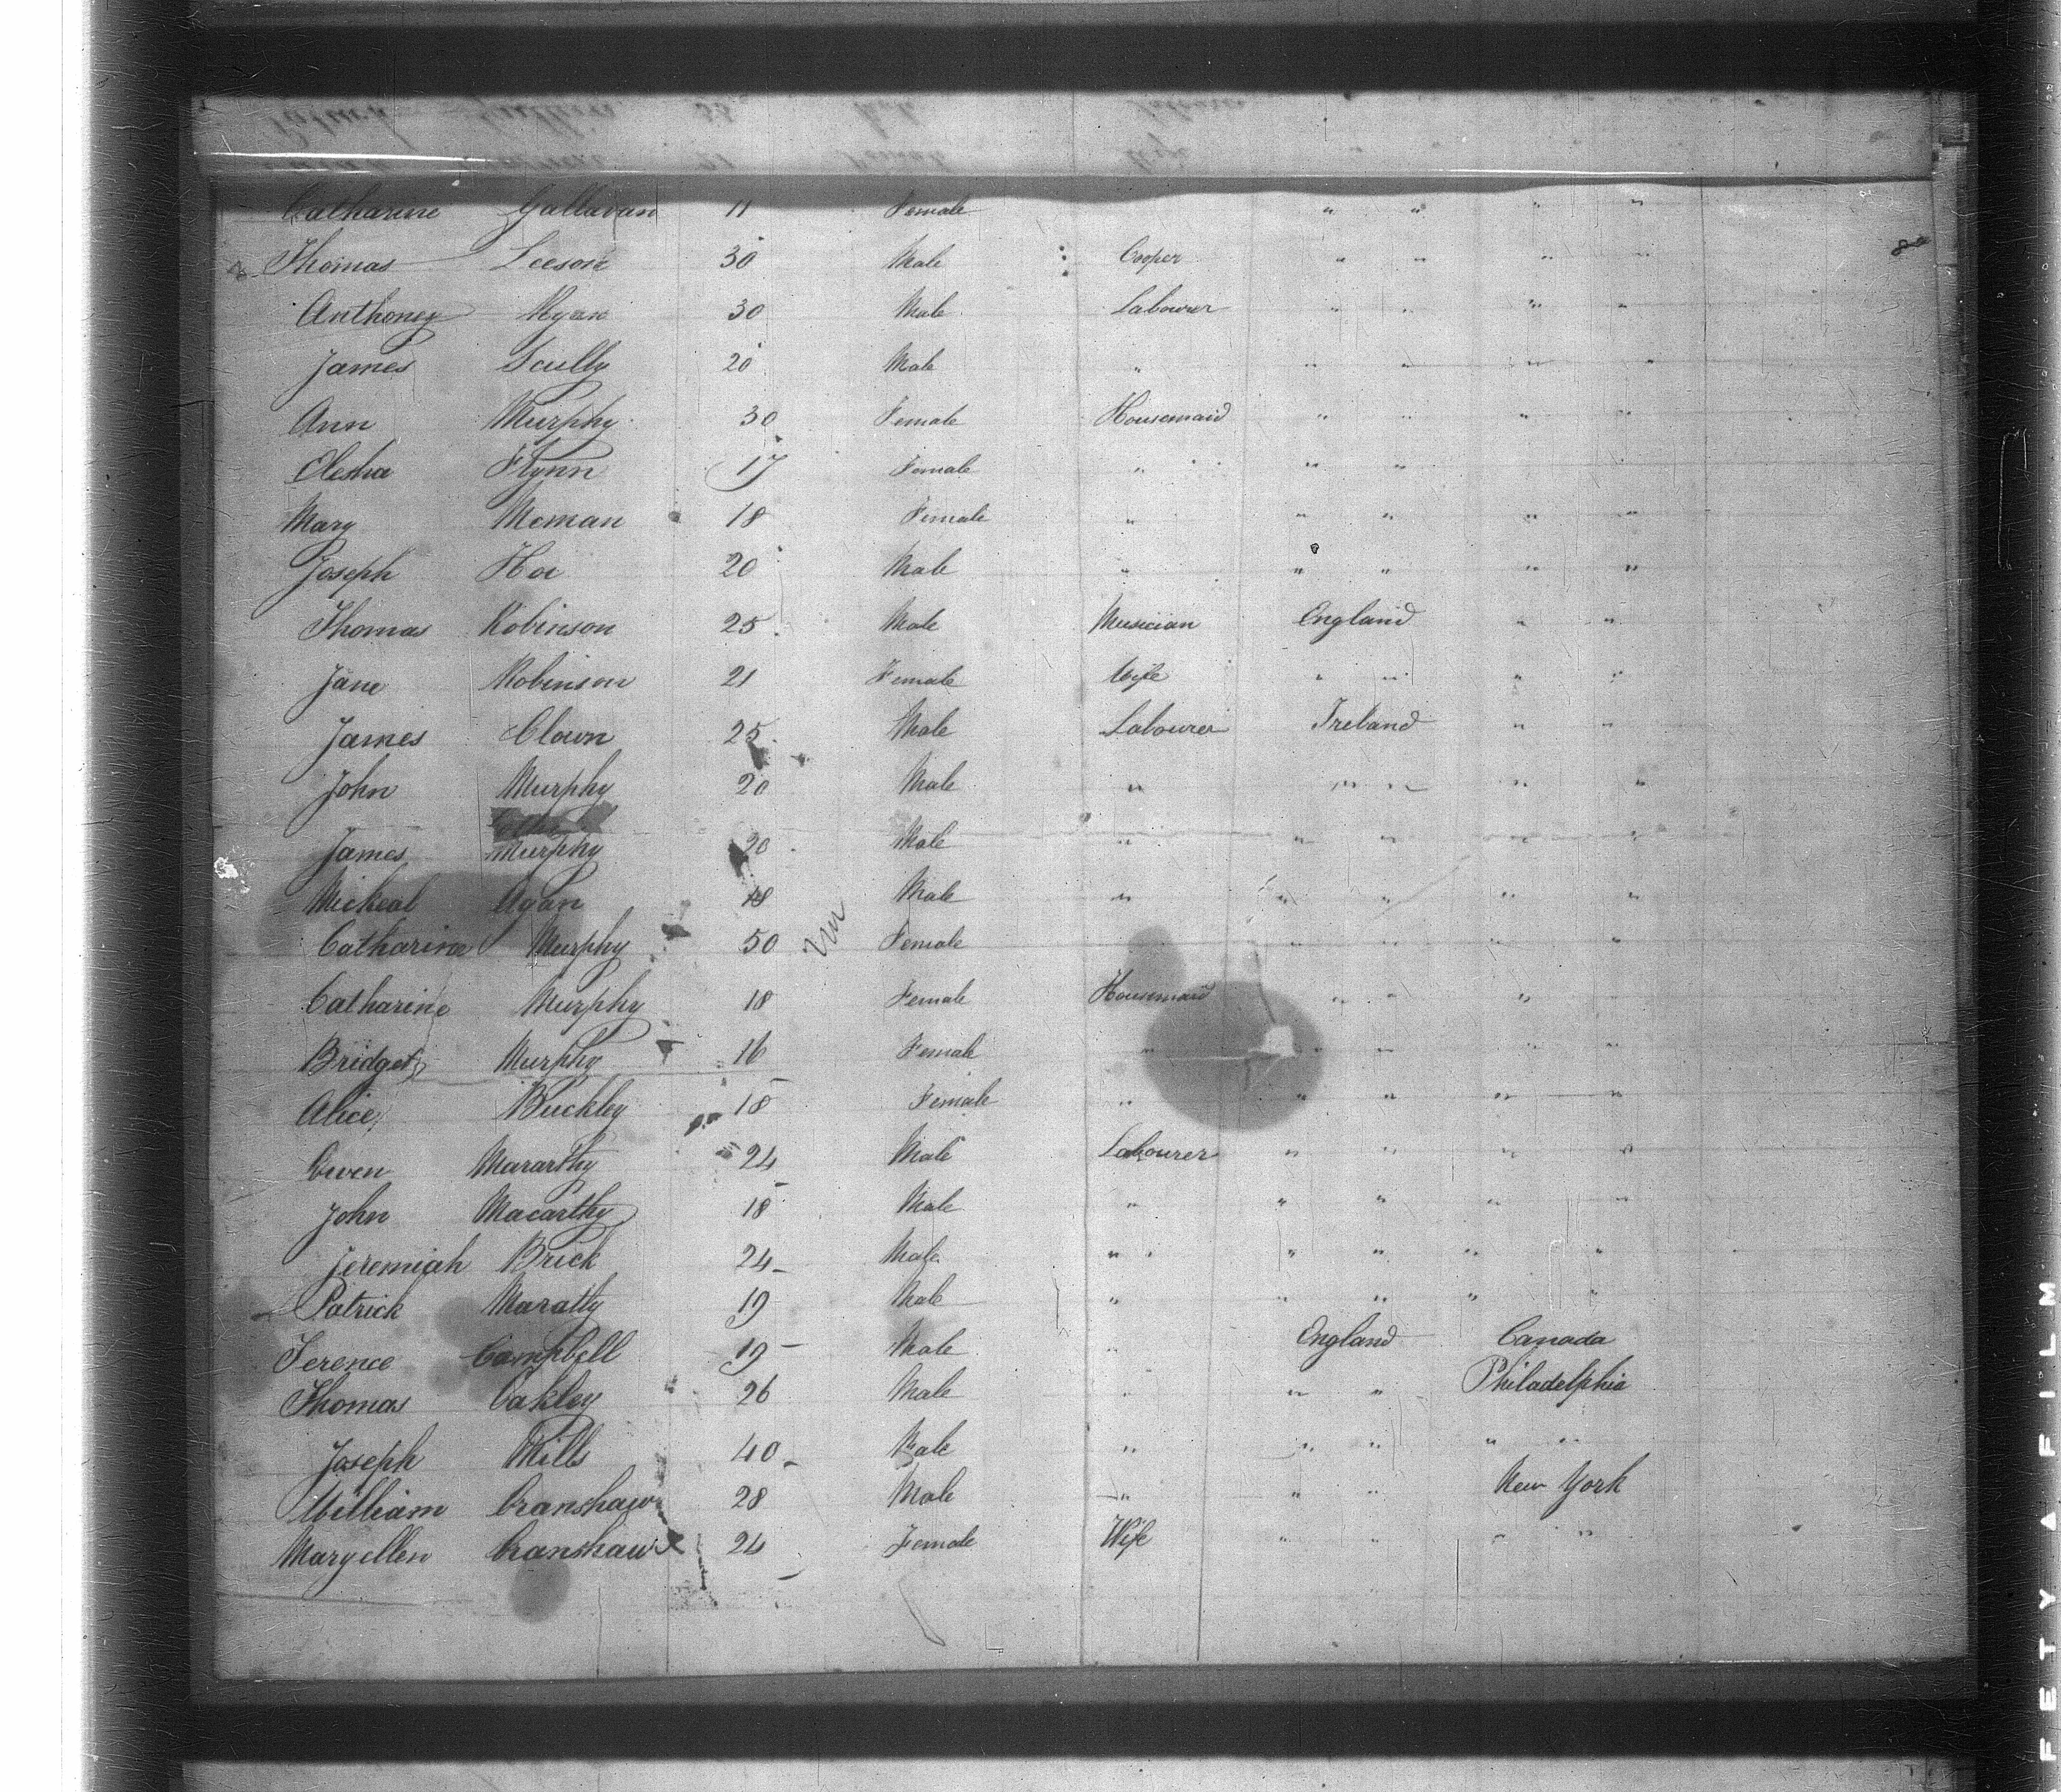 Catharine Gallavan 11 Female " " " "
Thomas Leeson 30 Male Cooper " " " "
Anthoney Ryan 30 Male Labourer " " " "
James Scully 20 Male " " " " "
Ann Murphy 30 Female Housemaid " " " "
Elesha Flynn 17 Female " " " " "
Mary Meman 18 Female " " " " "
Joseph Hoi 20 Male " " " " "
Thomas Robinson 25 Male Musician England " "
Jane Robinson 21 Female Wife " " " "
James Clown 25 Male Labourer Ireland " "
John Murphy 20 Male " " " " "
James Murphy 20 Male " " " " "
Mickeal Agan 18 Male " " " " "
Catharine Murphy 50 Female " " " "
Catharine Murphy 18 Female Housemaid " " " "
Bridget Murphy 16 Female " " " " "
Alice Buckley 18 Female " " " " "
Owen Mararthy 24 Male Labourer " " " "
John Macarthy 18 Male " " " " "
Jeremiah Brick 24 Male " " " " "
Patrick Maratty 19 Male " " " " "
Terence Campbell 19 Male " England Canada
Thomas Oakley 26 Male " " " Philadelphia
Joseph Mills 40 Male " " " " "
William Cranshaw 28 Male " " " New York
Maryellen Cranshaw 24 Female Wife " " " "
FETY A FILM